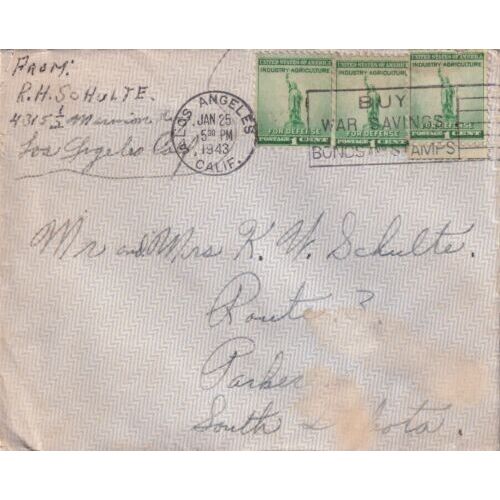 From:
R.H. SCHULTE.
4315 1/2
Los Angeles Ca
LOS ANGELES
CALIF.
JAN 25
5 30 PM
1943
BUY
WAR SAVINGS
BONDS STAMPS
UNITED STATES OF AMERICA
INDUSTRY AGRICULTURE
FOR DEFENSE
POSTAGE 1 CENT
UNITED STATES OF AMERICA
INDUSTRY AGRICULTURE
FOR DEFENSE
POSTAGE 1 CENT
UNITED STATES OF AMERICA
INDUSTRY AGRICULTURE
FOR DEFENSE
POSTAGE 1 CENT
Mr and Mrs K. W. Schulte.
Route
Parker
South Dakota.